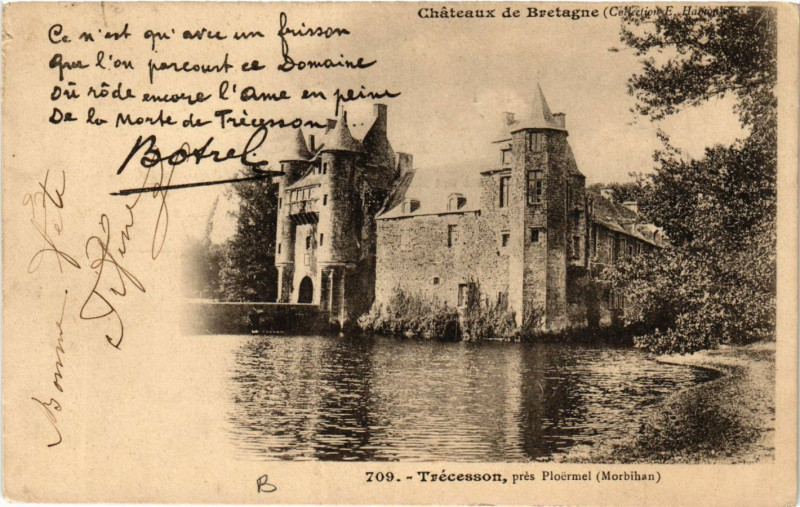 Châteaux de Bretagne (Collection E. Hamonic
Ce n'est qu'avec un frisson
Que l'on parcourt ce Domaine
Où rôde encore l'Ame en peine
De la Morte de Trécesson...
Botrel
Bonne fête
B
709. - Trécesson, près Ploërmel (Morbihan)